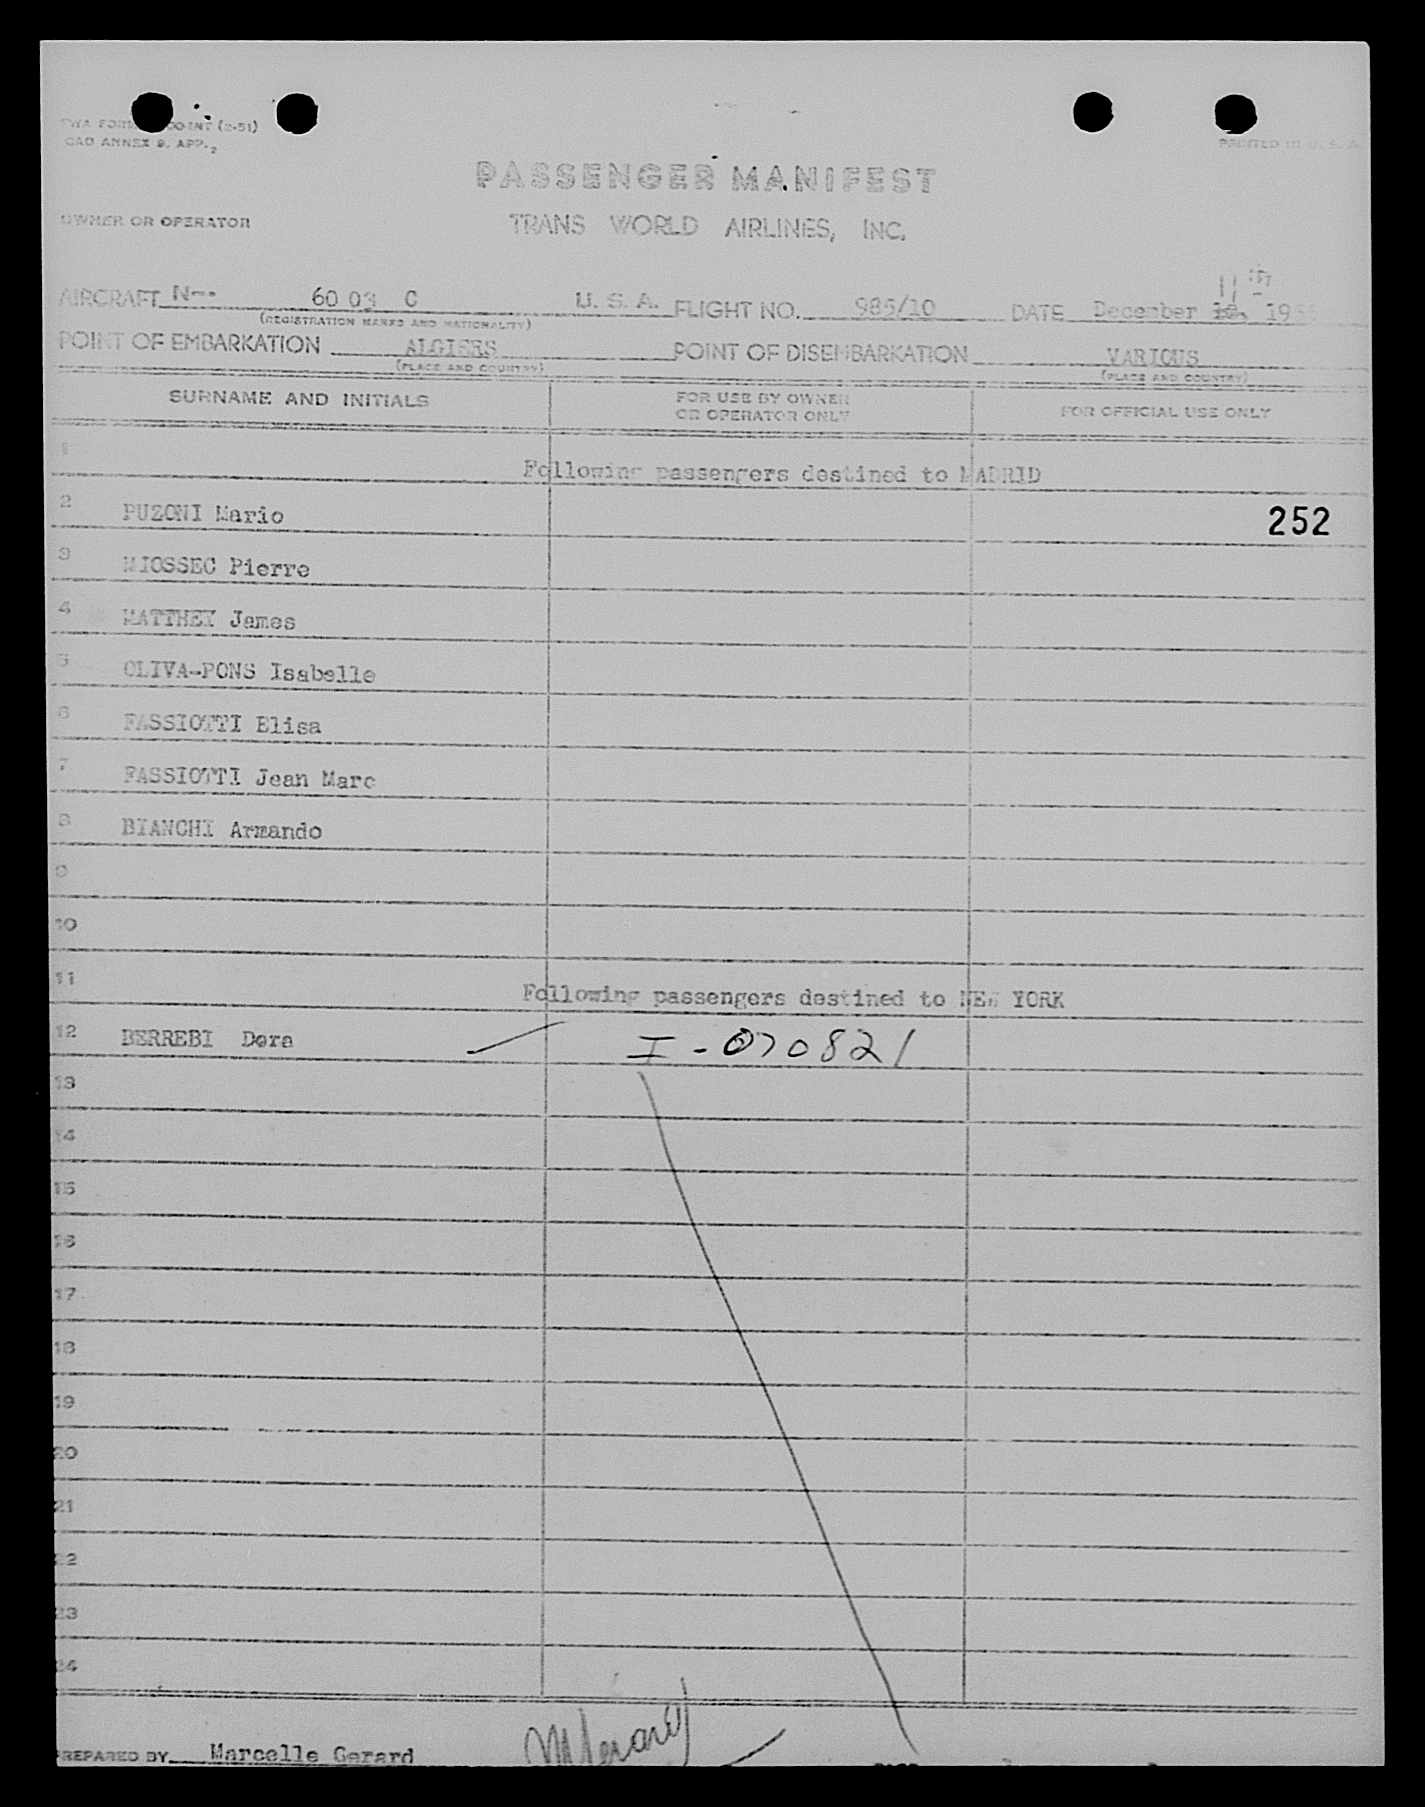 TWA FORM
ICAO ANNEX 9, APP. 2
PRINTED IN U. S. A.
PASSENGER MANIFEST
OWNER OR OPERATOR TRANS WORLD AIRLINES, INC.
11
AIRCRAFT N-- 60 03 C U. S. A. FLIGHT NO. 985/10 DATE December 10, 195
(REGISTRATION MARKS AND NATIONALITY)
POINT OF EMBARKATION ALGIERS POINT OF DISEMBARKATION VARIOUS
(PLACE AND COUNTRY) (PLACE AND COUNTRY)
SURNAME AND INITIALS FOR USE BY OWNER OR OPERATOR ONLY FOR OFFICIAL USE ONLY
1 Following passengers destined to MADRID
2 PUZONI Mario 252
3 MIOSSEC Pierre
4 MATTHEY James
5 OLIVA-PONS Isabelle
6 FASSIOTTI Elisa
7 FASSIOTTI Jean Marc
8 BIANCHI Armando
9
10
11 Following passengers destined to NEW YORK
12 BERREBI Dora I-070821
13
14
15
16
17
18
19
20
21
22
23
24
PREPARED BY Marcelle Gerard MGerard